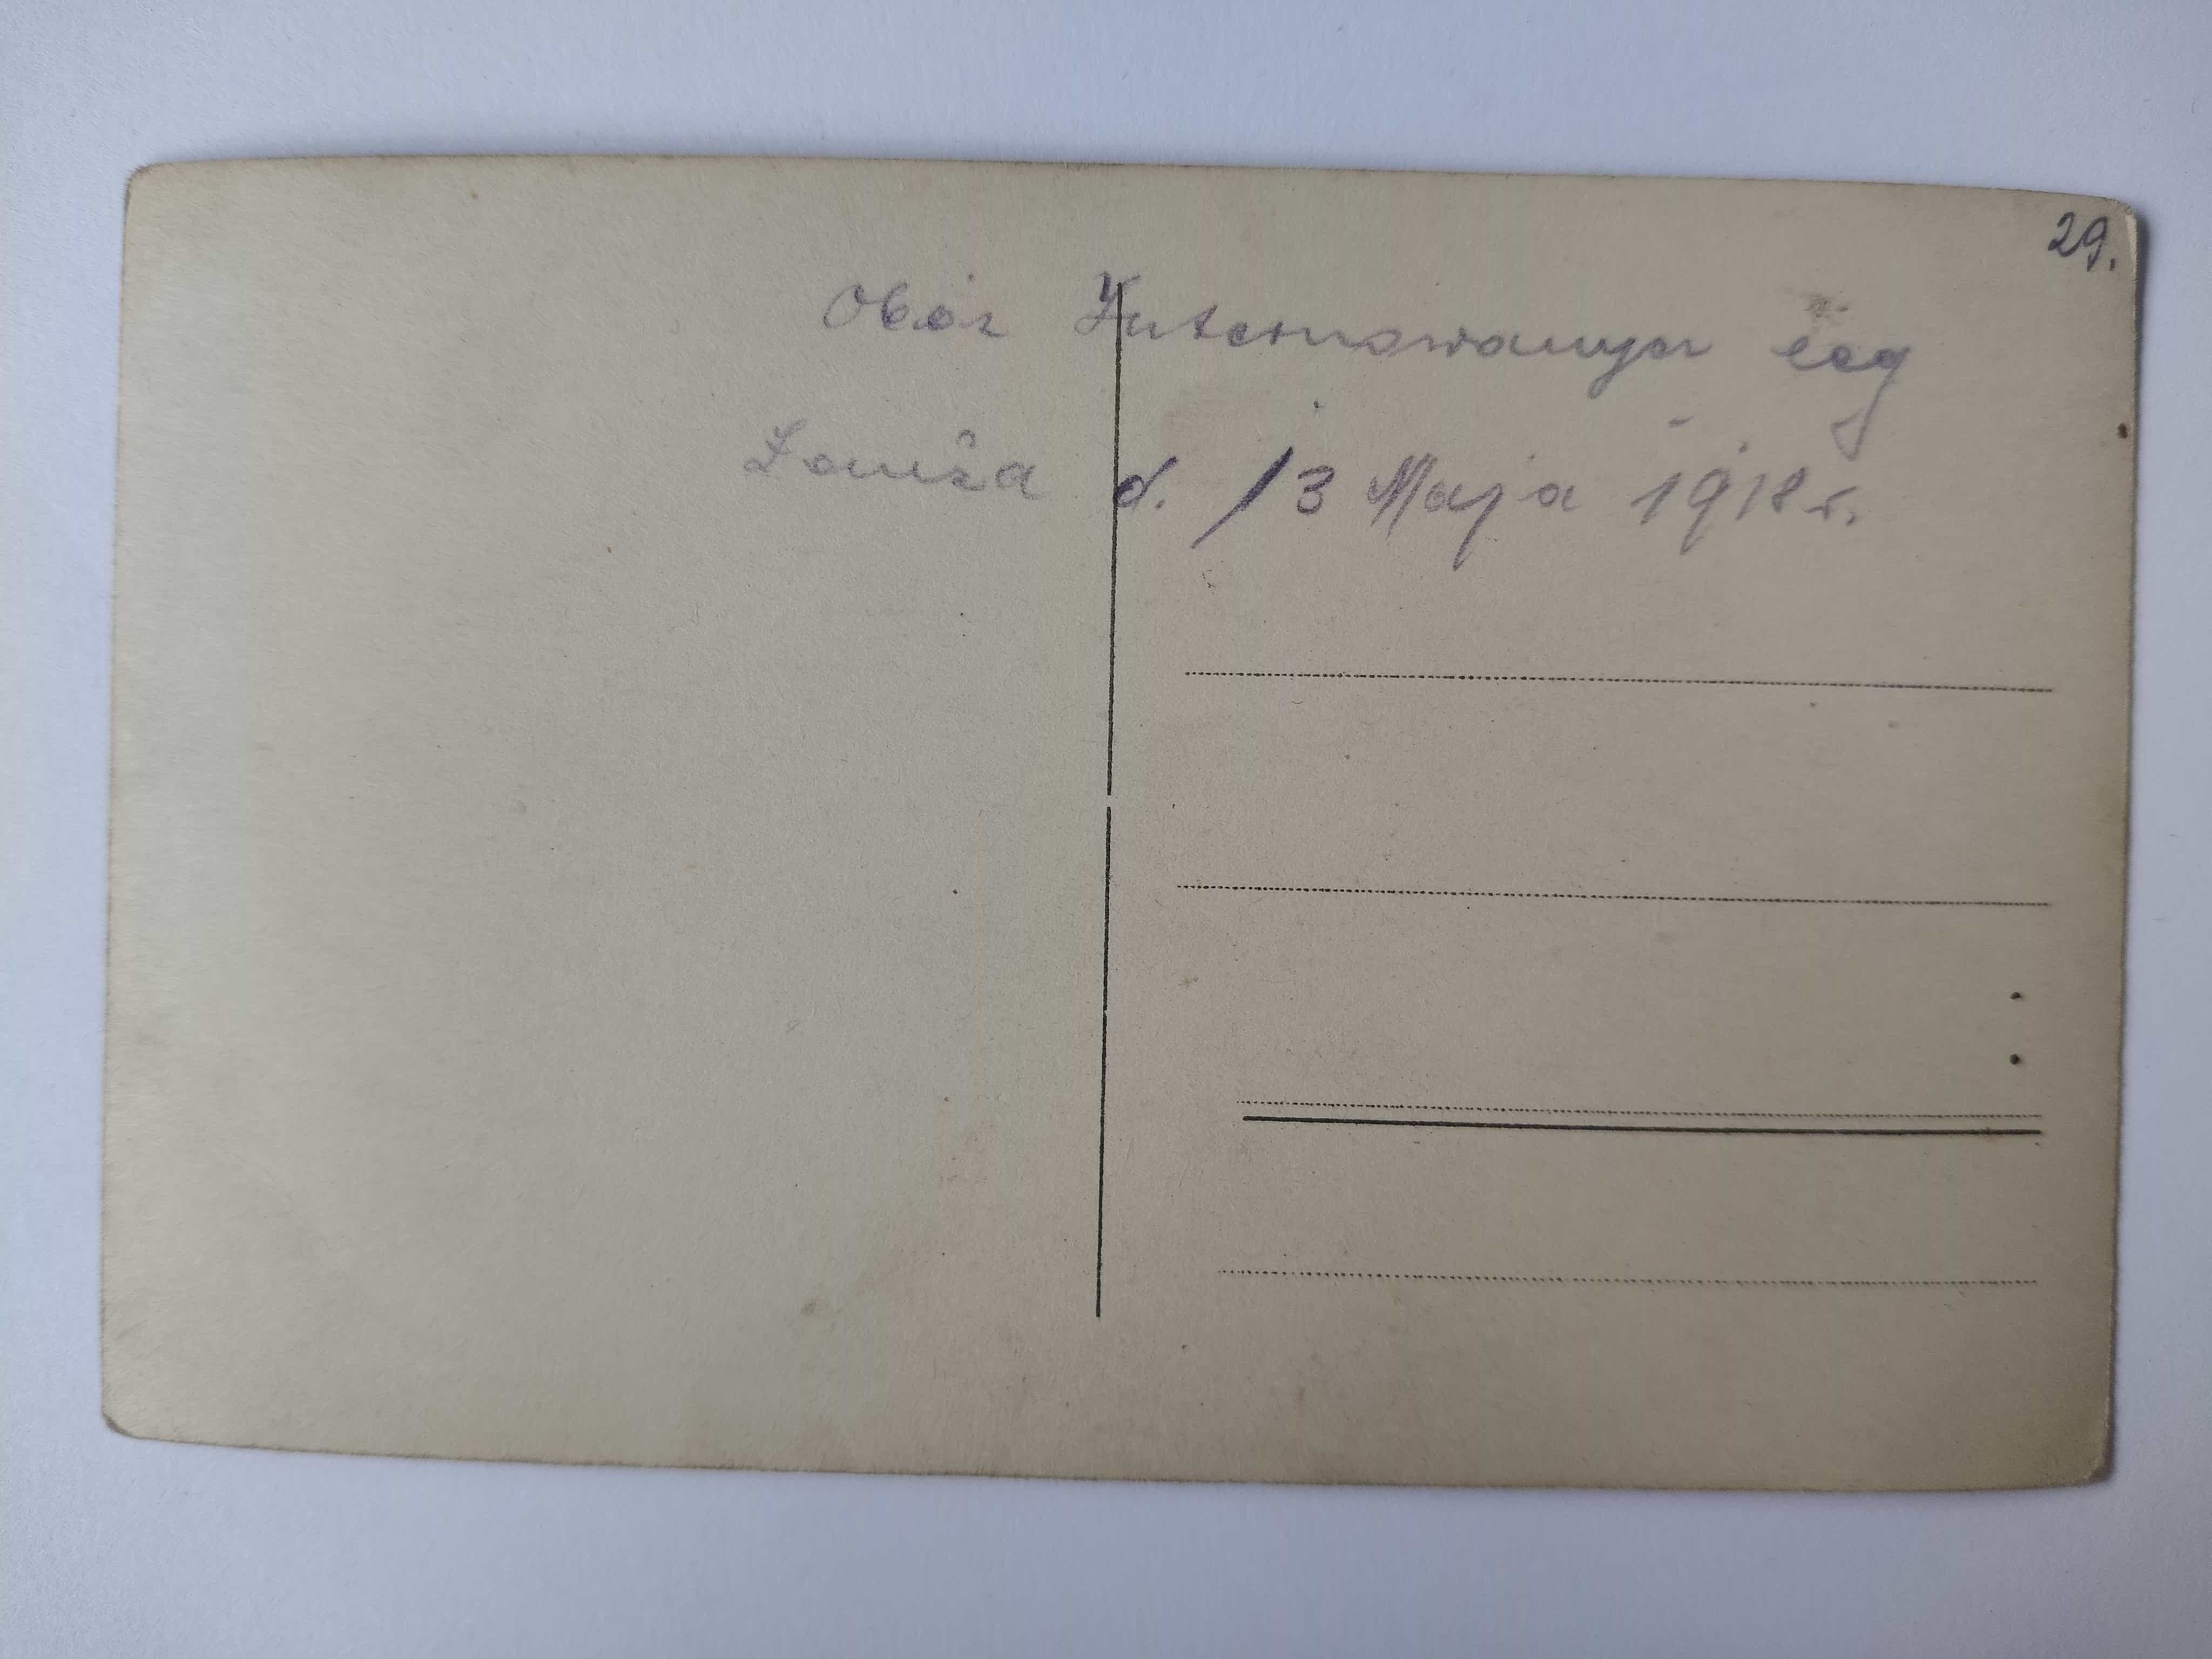 29.
Obóz Internowanych Leg
Łomża d. 13 Maja 1918 r.